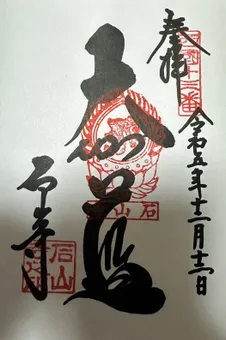 奉拝
西国十三番
令和五年十二月十二日
大悲殿
石山
石山寺
石山寺